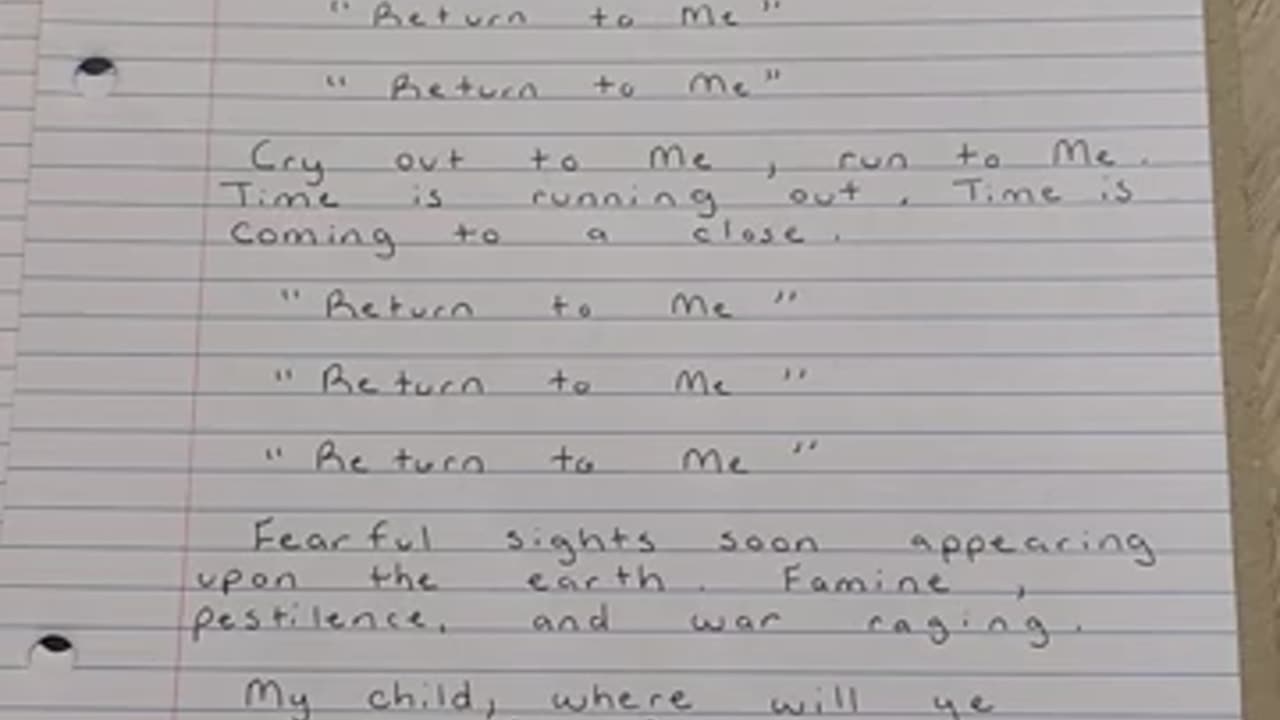 "Return to Me"
"Return to Me"
Cry out to Me, run to Me.
Time is running out. Time is
coming to a close.
"Return to Me"
"Return to Me"
"Return to Me"
Fearful sights soon appearing
upon the earth. Famine,
pestilence, and war raging.
My child, where will ye